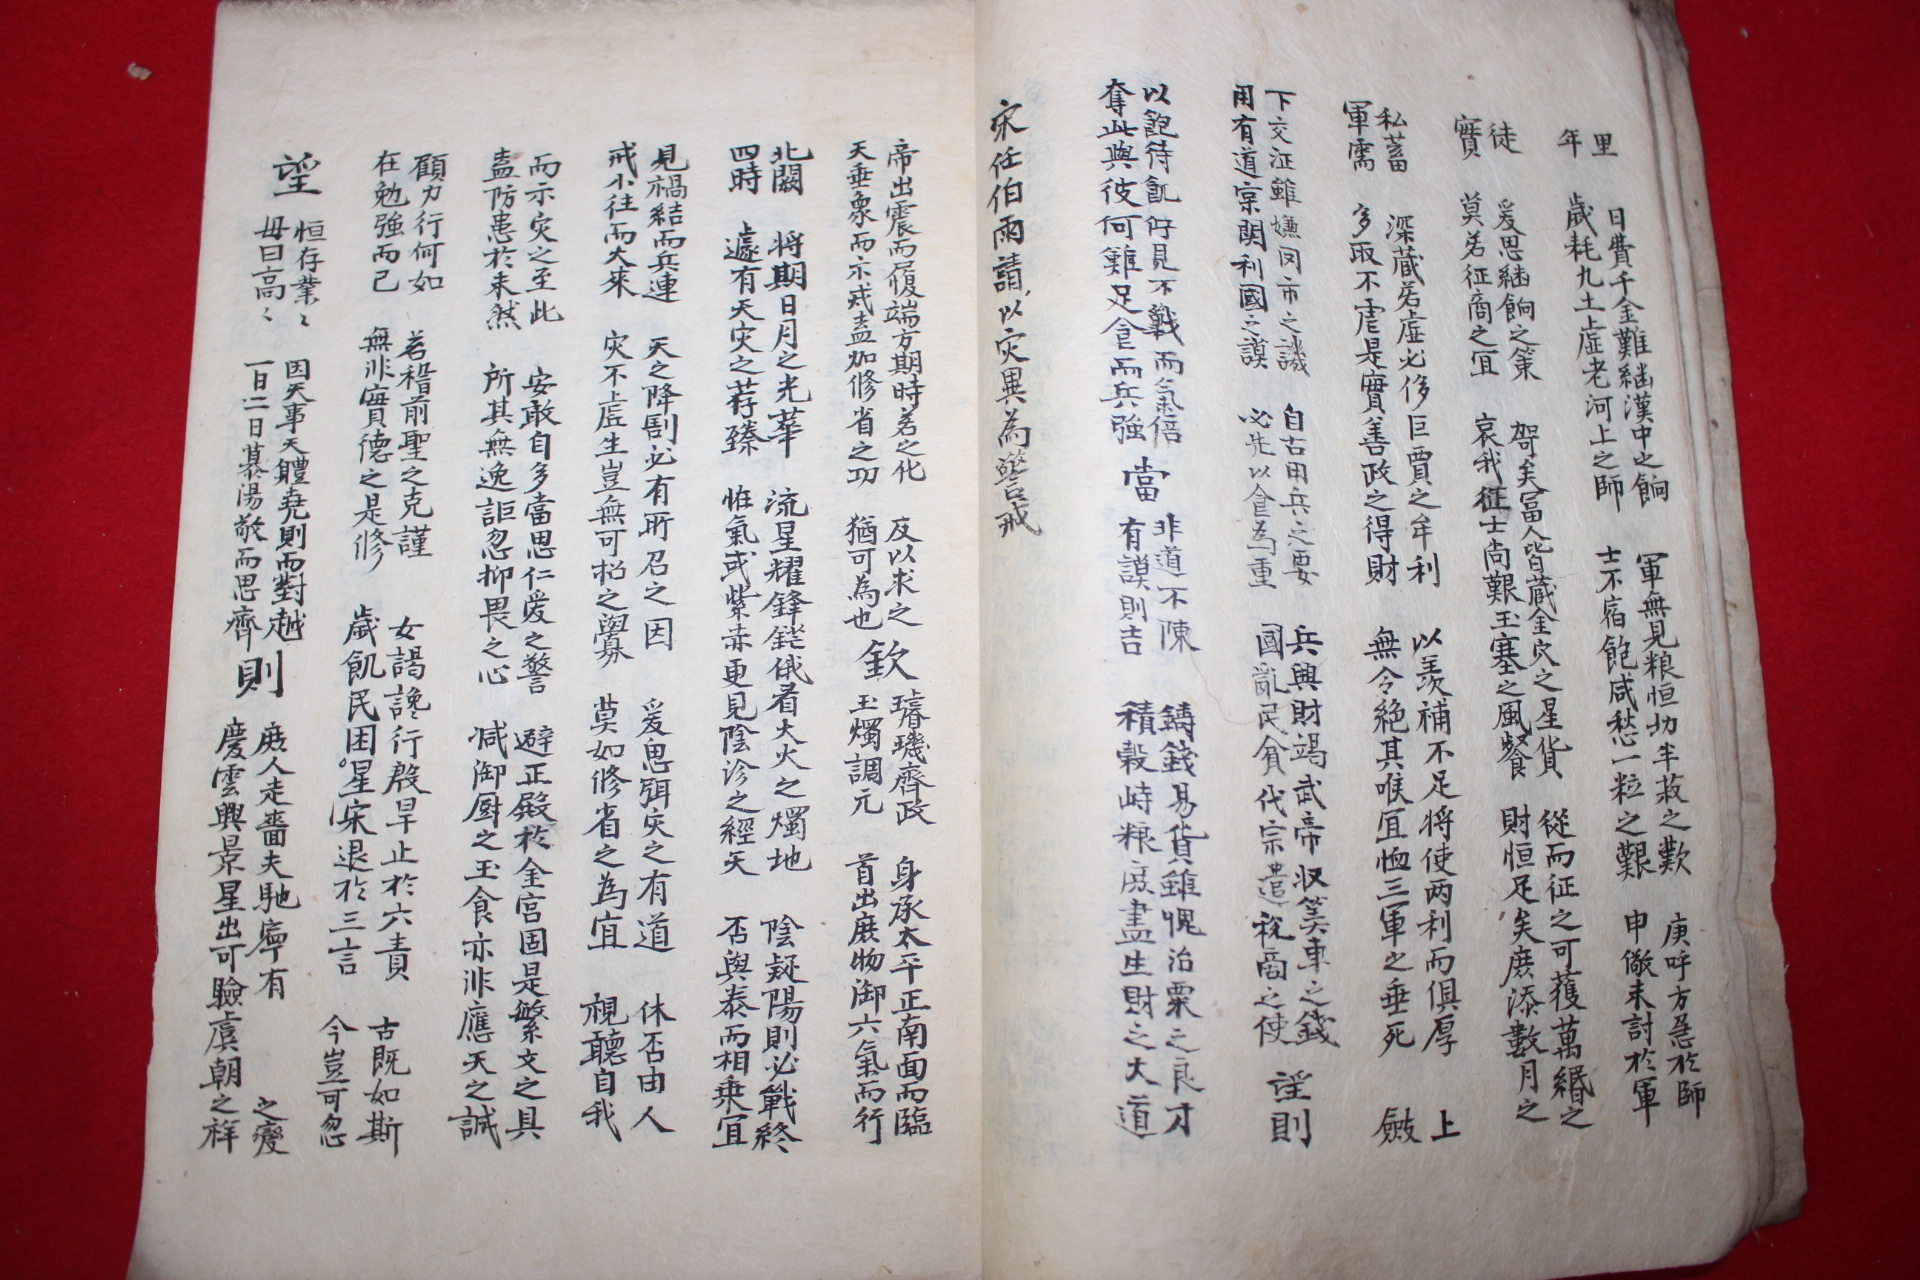 里 日費千金難繼漢中之餉 軍無見粮恒切半菽之歎 庚呼方急於師
年 歲耗九土虛老河上之師 士不宿飽咸愁一粒之艱 申儆未討於軍
徒 爰思繼餉之策 哿矣富人皆藏金穴之星貨 從而征之可獲萬緡之
實 莫若征商之宜 哀我征士尚艱玉塞之風餐 財恒足矣庶添數月之
私蓄 深藏若虛必侈巨賈之牟利 以羡補不足將使两利而俱厚 上
軍需 多取不虐是實善政之得財 無令絶其喉宜恤三軍之垂死 斂
下交征雖嫌罔市之譏 自古用兵之要 兵興財竭武帝収筭車之錢
用有道宗閔利國之謨 必先以食為重 國亂民貧代宗遣税商之使 望則
以飽待飢佇見不戰而氣倍 當 非道不陳 鑄錢易貨雖愧治粟之良才
奪此與彼何難足食而兵強 有謨則吉 積穀峙粮庶盡生財之大道
宋任伯雨請以灾異為警戒
帝出震而履端方期時若之化 反以求之 欽 璿璣齊政 身承太平正南面而臨
天垂象而示戒盍加修省之功 猶可為也 玉燭調元 首出庶物御六氣而行
北闕 将期日月之光華 流星耀鋒鋩俄看大火之燭地 陰疑陽則必戰終
四時 遽有天灾之荐臻 恠氣或紫赤更見陰沴之經天 否與泰而相乗宜
見禍結而兵連 天之降割必有所召之因 爰思弭灾之有道 休否由人
戒小往而大来 灾不虛生豈無可招之釁 莫如修省之為宜 視聽自我
而示灾之至此 安敢自多當思仁爱之警 避正殿於金宫固是繁文之具
盍防患於未然 所其無逸詎忽抑畏之心 减御厨之玉食亦非應天之誠
顧力行何如 若稽前聖之克謹 女謁讒行殷旱止於六責 古既如斯
在勉強而已 無非實德之是修 歲飢民困星宋退於三言 今豈可忽
望 恒存業〻 因天事天體堯則而對越 則 庶人走嗇夫馳寧有 之變
毋曰高〻 一日二日慕湯敬而思齊 慶雲興景星出可驗虞朝之祥